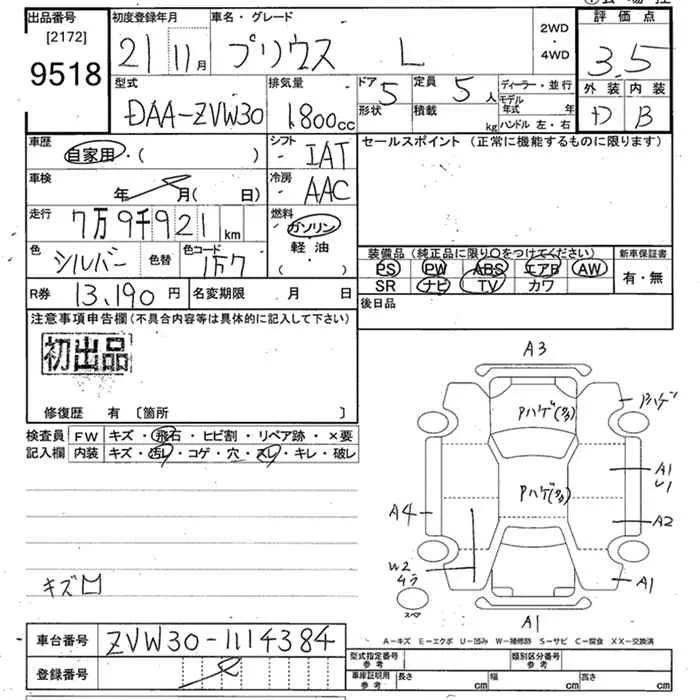 出品番号 初度登録年月 車名・グレード 2WD・4WD 評価点
[2172]
9518 21 11月 プリウス L 3.5
型式 排気量 ドア 定員 ディーラー・並行 外装 内装
DAA-ZVW30 1800cc 5 5人 モデル年式 年 D B
形状 積載 kg ハンドル 左・右
車歴 シフト セールスポイント (正常に機能するものに限ります)
自家用・( ) IAT
車検 冷房
年 月(日) AAC
走行 7万9千921km 燃料
ガソリン
軽・油
( ・ )
色 シルバー 色替 色コード 1F7
装備品 (純正品に限り○をつけてください) 新車保証書
PS PW ABS エアB AW 有・無
SR ナビ TV カワ
R券 13,190円 名変期限 月 日 後日品
注意事項申告欄(不具合内容等は具体的に記入して下さい)
初出品
修復歴 有 〔箇所 〕
検査員 FW キズ・飛石・ヒビ割・リペア跡・×要
記入欄 内装 キズ・汚レ・コゲ・穴・スレ・キレ・破レ
A3
Pハゲ(多)
Pハゲ
Pハゲ(多)
A1
U1
A4
A2
W2
A1
スペア
A1
キズ凹
A-キズ E-エクボ U-凹み W-補修跡 S-サビ C-腐食 XX-交換済
車台番号 ZVW30-1114384
型式指定番号 参考 類別区分番号 参考
登録番号
車庫証明用 参考 長さ cm 幅 cm 高さ cm